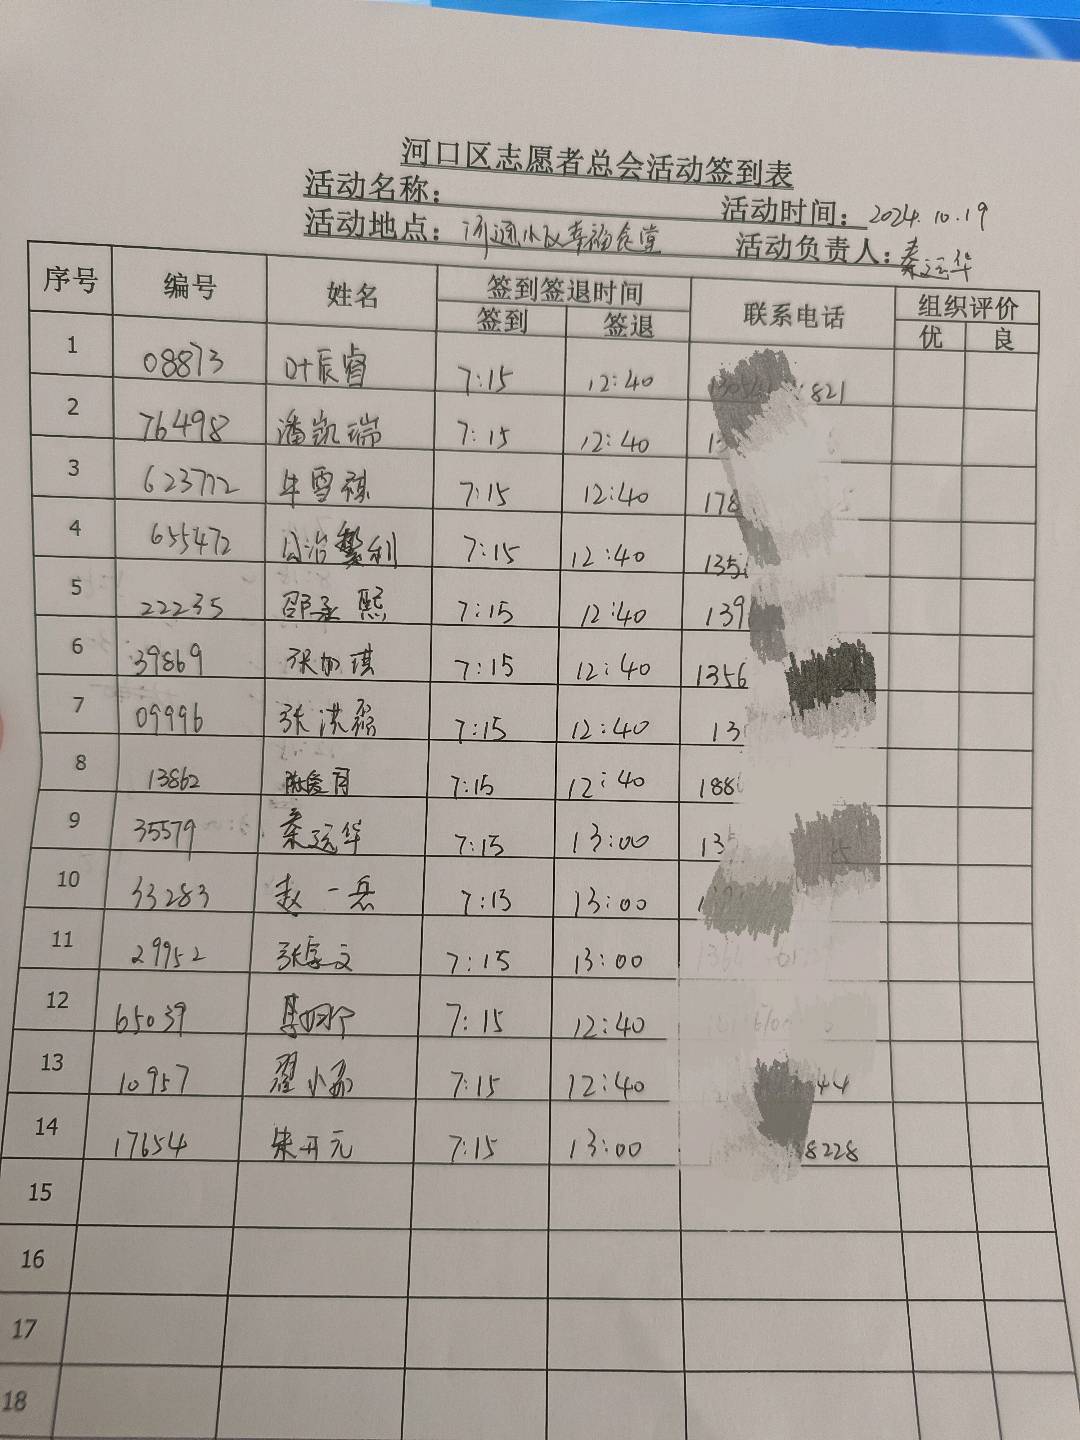 河口区志愿者总会活动签到表
活动名称： 活动时间：2024.10.19
活动地点：济通小区幸福食堂 活动负责人：秦远华
序号 编号 姓名 签到签退时间 联系电话 组织评价
签到 签退 优 良
1 08873 叶辰睿 7:15 12:40 821
2 76498 潘凯瑞 7:15 12:40
3 623772 牛雪祺 7:15 12:40 178
4 655472 公治繁利 7:15 12:40 135
5 22235 邵孟熙 7:15 12:40 139
6 39869 张加琪 7:15 12:40 1356
7 09996 张洪磊 7:15 12:40 13
8 13862 7:15 12:40 188
9 35579 秦远华 7:15 13:00 13
10 33283 赵一岳 7:15 13:00
11 29952 张家文 7:15 13:00
12 65039 7:15 12:40
13 10957 翟小 7:15 12:40 44
14 17654 朱开元 7:15 13:00 8228
15
16
17
18